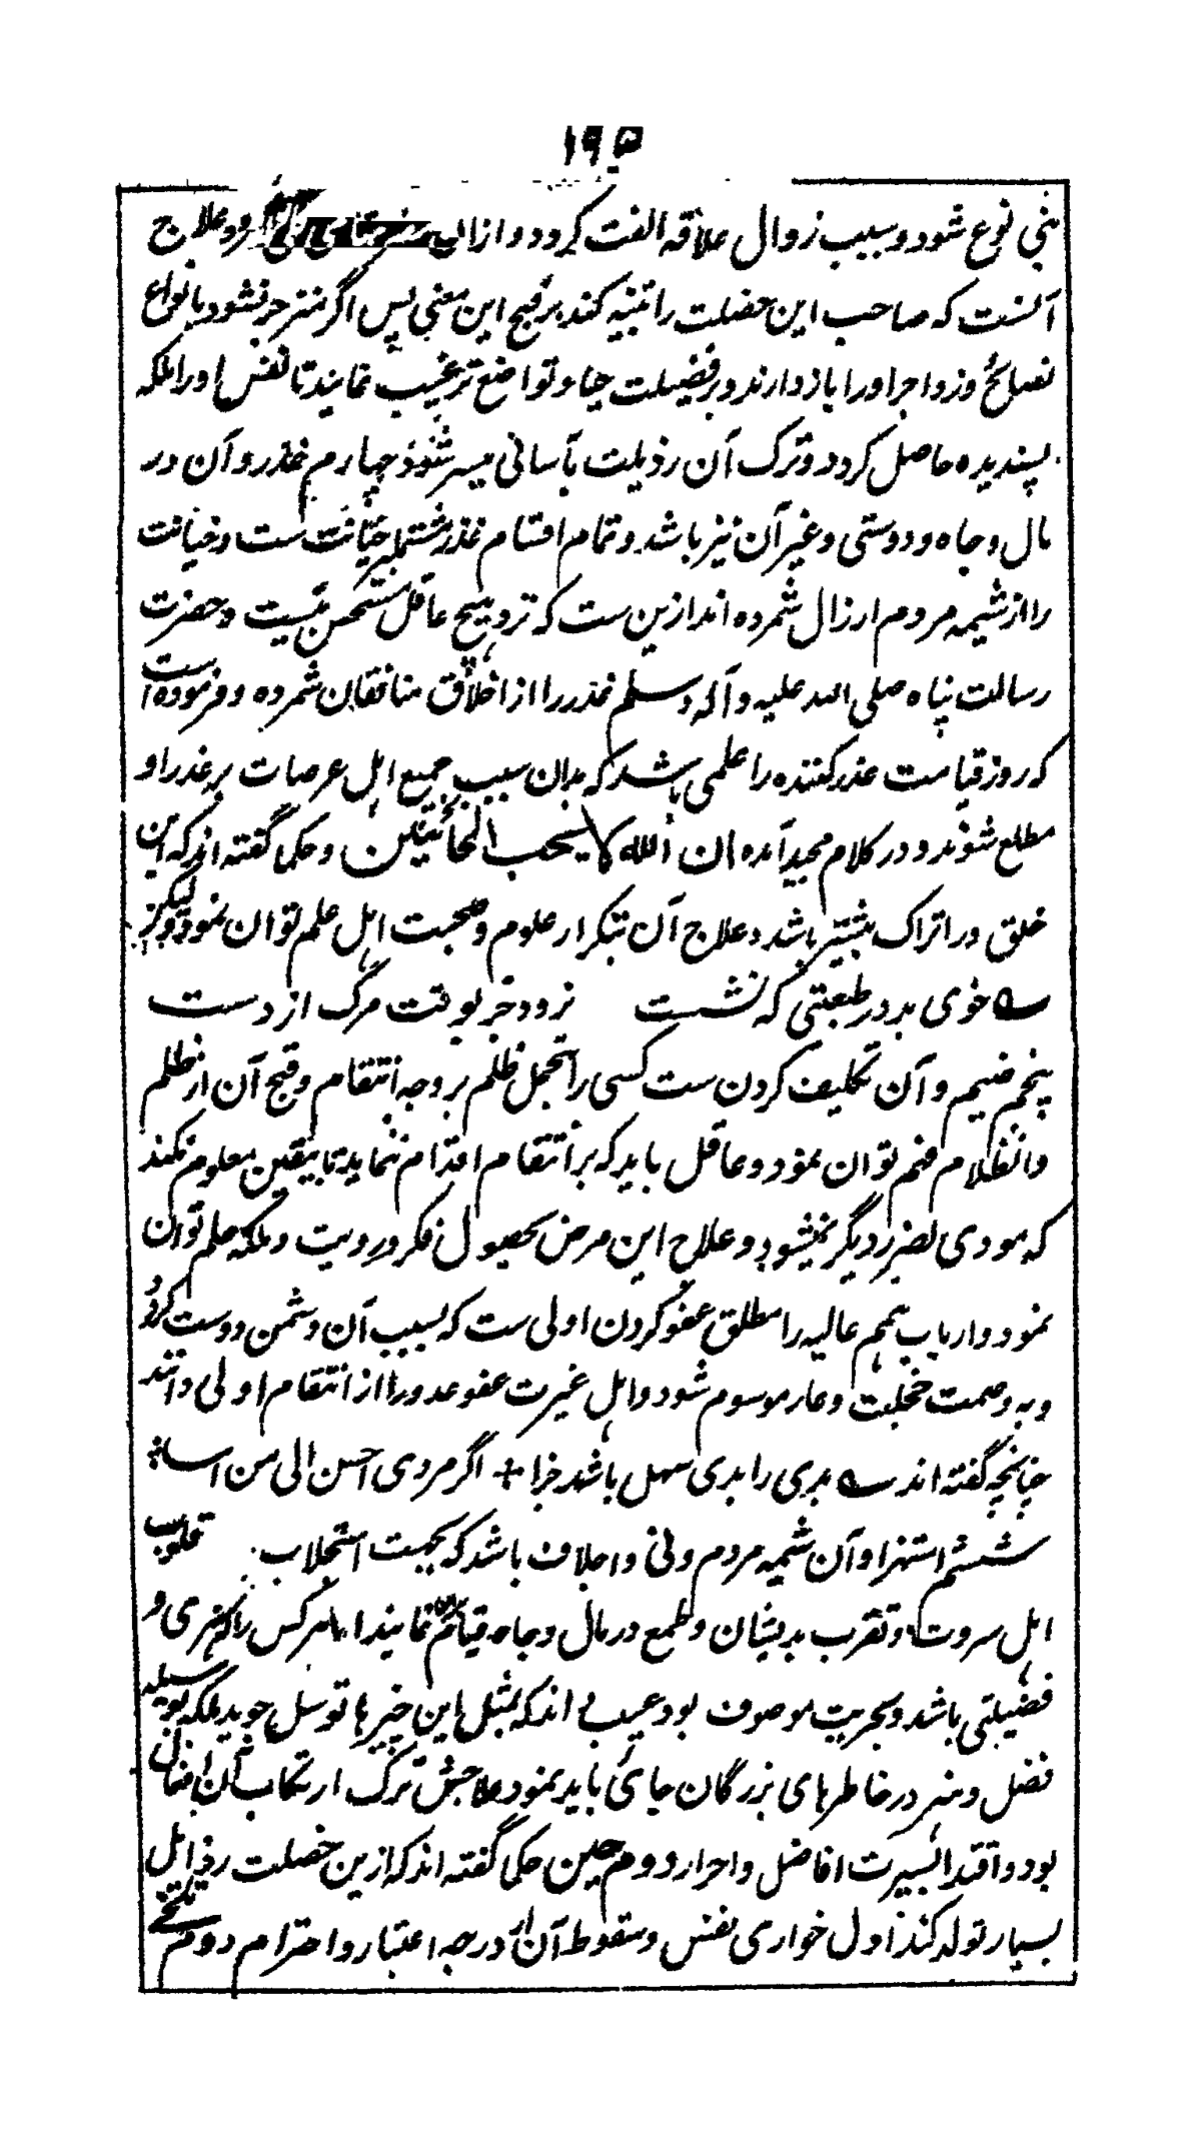 ۱۹۵
بنی نوع شود و سبب زوال علاقه الفت گردد و ازان رود علاج
آنست که صاحب این خصلت را تنبیه کند بر قبح این معنی پس اگر منزجر نشود بانواع
نصایح و زواجر او را باز دارند و بر فضیلت حیا و تواضع ترغیب نمایند تا نفس او را ملکه
پسندیده حاصل گردد و ترک آن رذیلت بآسانی میسر شود چهارم غدر و آن در
مال و جاه و دوستی و غیر آن نیز باشد و تمام اقسام غدر مشتملبر خیانت ست و خیانت
را از شیمه مردم ارزال شمرده اند ازین ست که نزد هیچ عاقل مستحسن نیست و حضرت
رسالت پناه صلی الله علیه وآله وسلم غدر را از اخلاق منافقان شمرده و فرموده است
که روز قیامت غدر کننده را علمی باشد که بدان سبب جمیع اهل عرصات بر غدر او
مطلع شوند و در کلام مجید آمده ان الله لا یحب الخائنین و حکما گفته اند که این
خلق در اتراک بیشتر باشد و علاج آن بتکرار علوم و صحبت اهل علم توان نمود ولیکن
ے خوی بد در طبیعتی که نشست نرود جز بوقت مرگ از دست
پنجم ضیم و آن تکلیف کردن ست کسی را بتحمل ظلم بر وجه انتقام و قبح آن از ظلم
و انظلام فهم توان نمود و عاقل باید که بر انتقام اقدام ننماید تا بیقین معلوم نکند
که مودی بضرر دیگر نمیشود و علاج این مرض بحصول فکر و رویت و ملکه حلم توان
نمود و ارباب همم عالیه را مطلق عفو کردن اولی ست که بسبب آن دشمن دوست گردد
و به وصمت خجلت و عار موسوم شود و اهل غیرت عفو عدو را از انتقام اولی دانند
چنانچه گفته اند ے بدی را بدی سهل باشد جزا + اگر مردی احسن الی من اسا
ششم استهزا و آن شیمه مردم دنی و اجلاف باشد که بجهت استجلاب قلوب
اهل ثروت و تقرب بدیشان و طمع در مال و جاه قیام نمایند اما هر کس را که هنری و
فضیلتی باشد و بحریت موصوف بود عیب داند که بمثل این چیزها توسل جوید بلکه بوسیله
فضل و هنر در خاطرهای بزرگان جای باید نمود علاجش ترک ارتکاب آن افعال
بود و اقتدا بسیرت افاضل و احرار و وم چین حکما گفته اند که ازین خصلت رذایل
بسیار تولد کند اول خواری نفس و سقوط آن از درجه اعتبار و احترام دوم